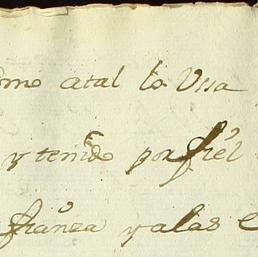 omo atal lo Usa
y tenido por fiel
fianza y alas